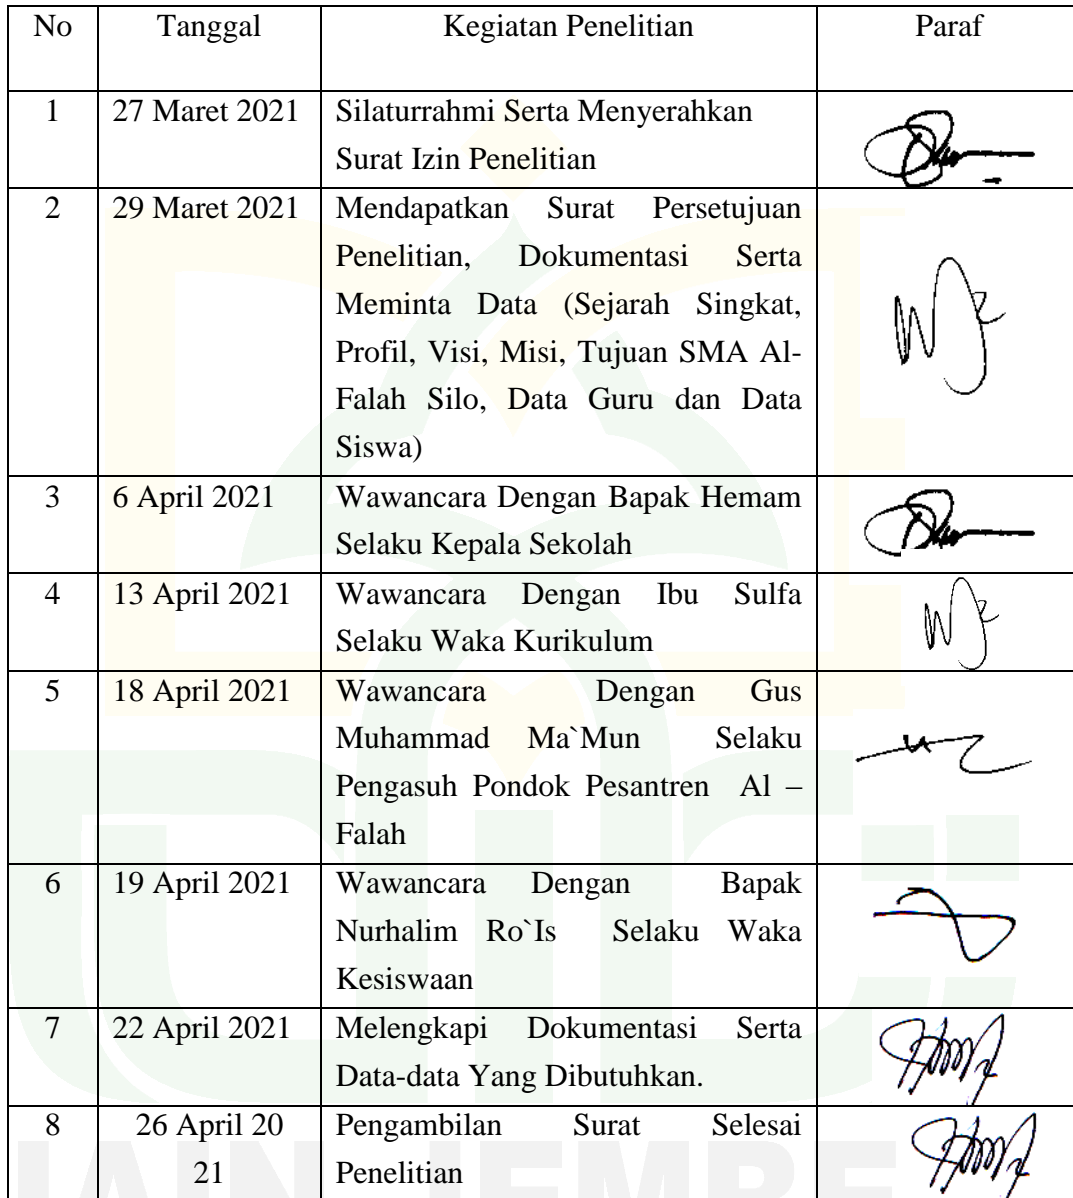 No Tanggal Kegiatan Penelitian Paraf
1 27 Maret 2021 Silaturrahmi Serta Menyerahkan
Surat Izin Penelitian
2 29 Maret 2021 Mendapatkan Surat Persetujuan
Penelitian, Dokumentasi Serta
Meminta Data (Sejarah Singkat,
Profil, Visi, Misi, Tujuan SMA Al-
Falah Silo, Data Guru dan Data
Siswa)
3 6 April 2021 Wawancara Dengan Bapak Hemam
Selaku Kepala Sekolah
4 13 April 2021 Wawancara Dengan Ibu Sulfa
Selaku Waka Kurikulum
5 18 April 2021 Wawancara Dengan Gus
Muhammad Ma`Mun Selaku
Pengasuh Pondok Pesantren Al –
Falah
6 19 April 2021 Wawancara Dengan Bapak
Nurhalim Ro`Is Selaku Waka
Kesiswaan
7 22 April 2021 Melengkapi Dokumentasi Serta
Data-data Yang Dibutuhkan.
8 26 April 20 Pengambilan Surat Selesai
21 Penelitian